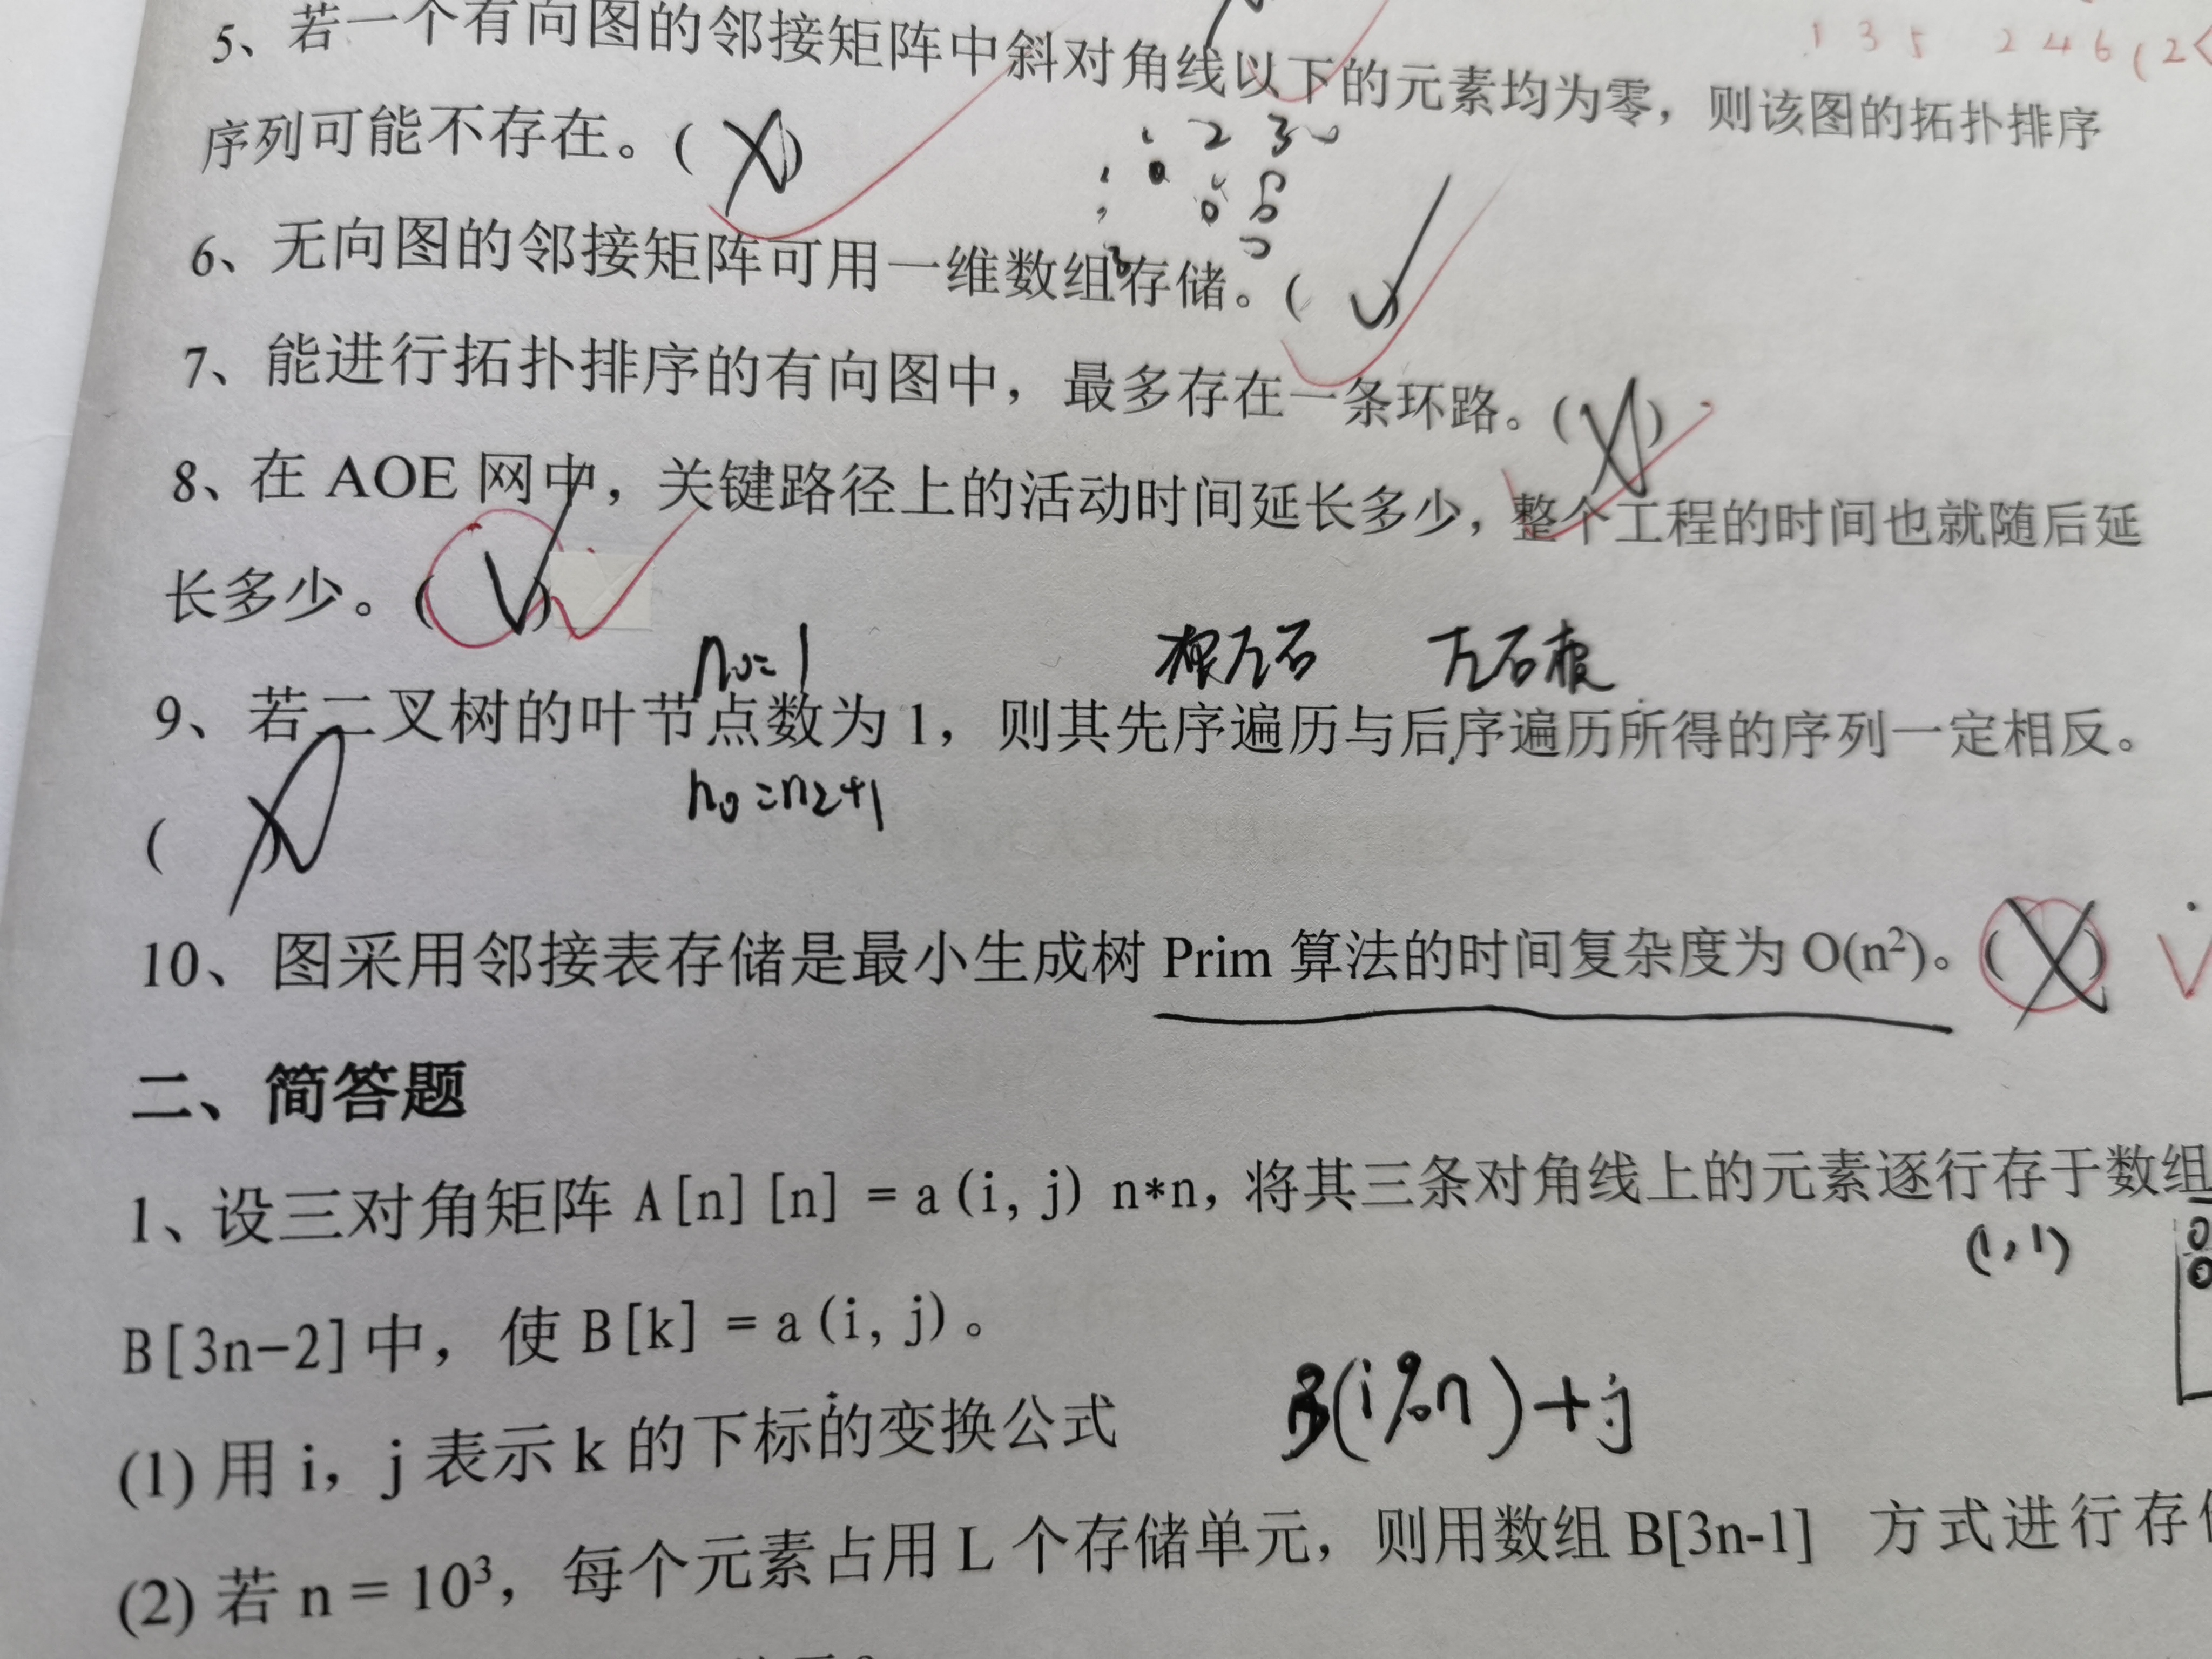 1 3 5 2 4 6 (2<
5、若一个有向图的邻接矩阵中斜对角线以下的元素均为零，则该图的拓扑排序
序列可能不存在。( X )
1 2 3
6、无向图的邻接矩阵可用一维数组存储。( √ )
7、能进行拓扑排序的有向图中，最多存在一条环路。( X )
8、在 AOE 网中，关键路径上的活动时间延长多少，整个工程的时间也就随后延
长多少。( √ )
n0=1 根左右 左右根
9、若二叉树的叶节点数为 1，则其先序遍历与后序遍历所得的序列一定相反。
( )
n0=n2+1
10、图采用邻接表存储是最小生成树 Prim 算法的时间复杂度为 O(n²)。( X ) √
二、简答题
1、设三对角矩阵 A[n][n] = a(i, j) n*n, 将其三条对角线上的元素逐行存于数组
(1,1)
B[3n-2]中，使 B[k] = a(i, j)。
(1) 用 i，j 表示 k 的下标的变换公式
3(i%n)+j
(2) 若 n = 10³，每个元素占用 L 个存储单元，则用数组 B[3n-1] 方式进行存